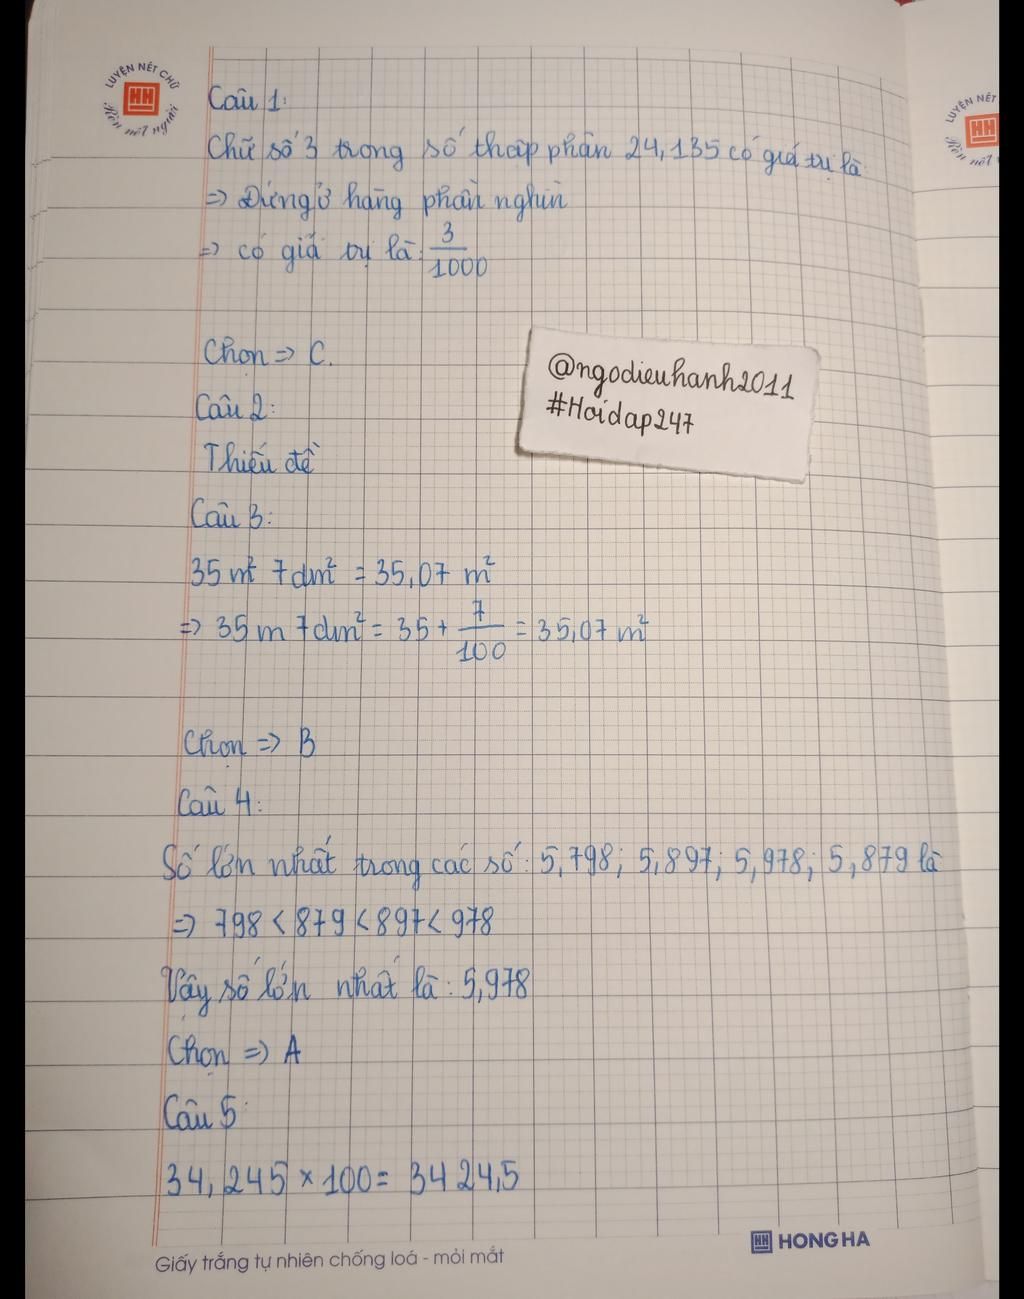 LUYỆN NÉT CHỮ
HH
Rèn nết người
LUYỆN NÉT
HH
Rèn nết
Câu 1:
Chữ số 3 trong số thập phân 24,135 có giá trị là:
=> Đứng ở hàng phần nghìn
=> có giá trị là: 3/1000
Chọn => C.
@ngodieuhanh2011
#Hoidap247
Câu 2:
Thiếu đề
Câu 3:
35 m² 7dm² = 35,07 m²
=> 35 m 7dm² = 35 + 7/100 = 35,07 m²
Chọn => B
Câu 4:
Số lớn nhất trong các số: 5,798; 5,897; 5,978; 5,879 là
=> 798 < 879 < 897 < 978
Vậy số lớn nhất là: 5,978
Chọn => A
Câu 5:
34,245 × 100 = 3424,5
HH HONG HA
Giấy trắng tự nhiên chống loá - mỏi mắt